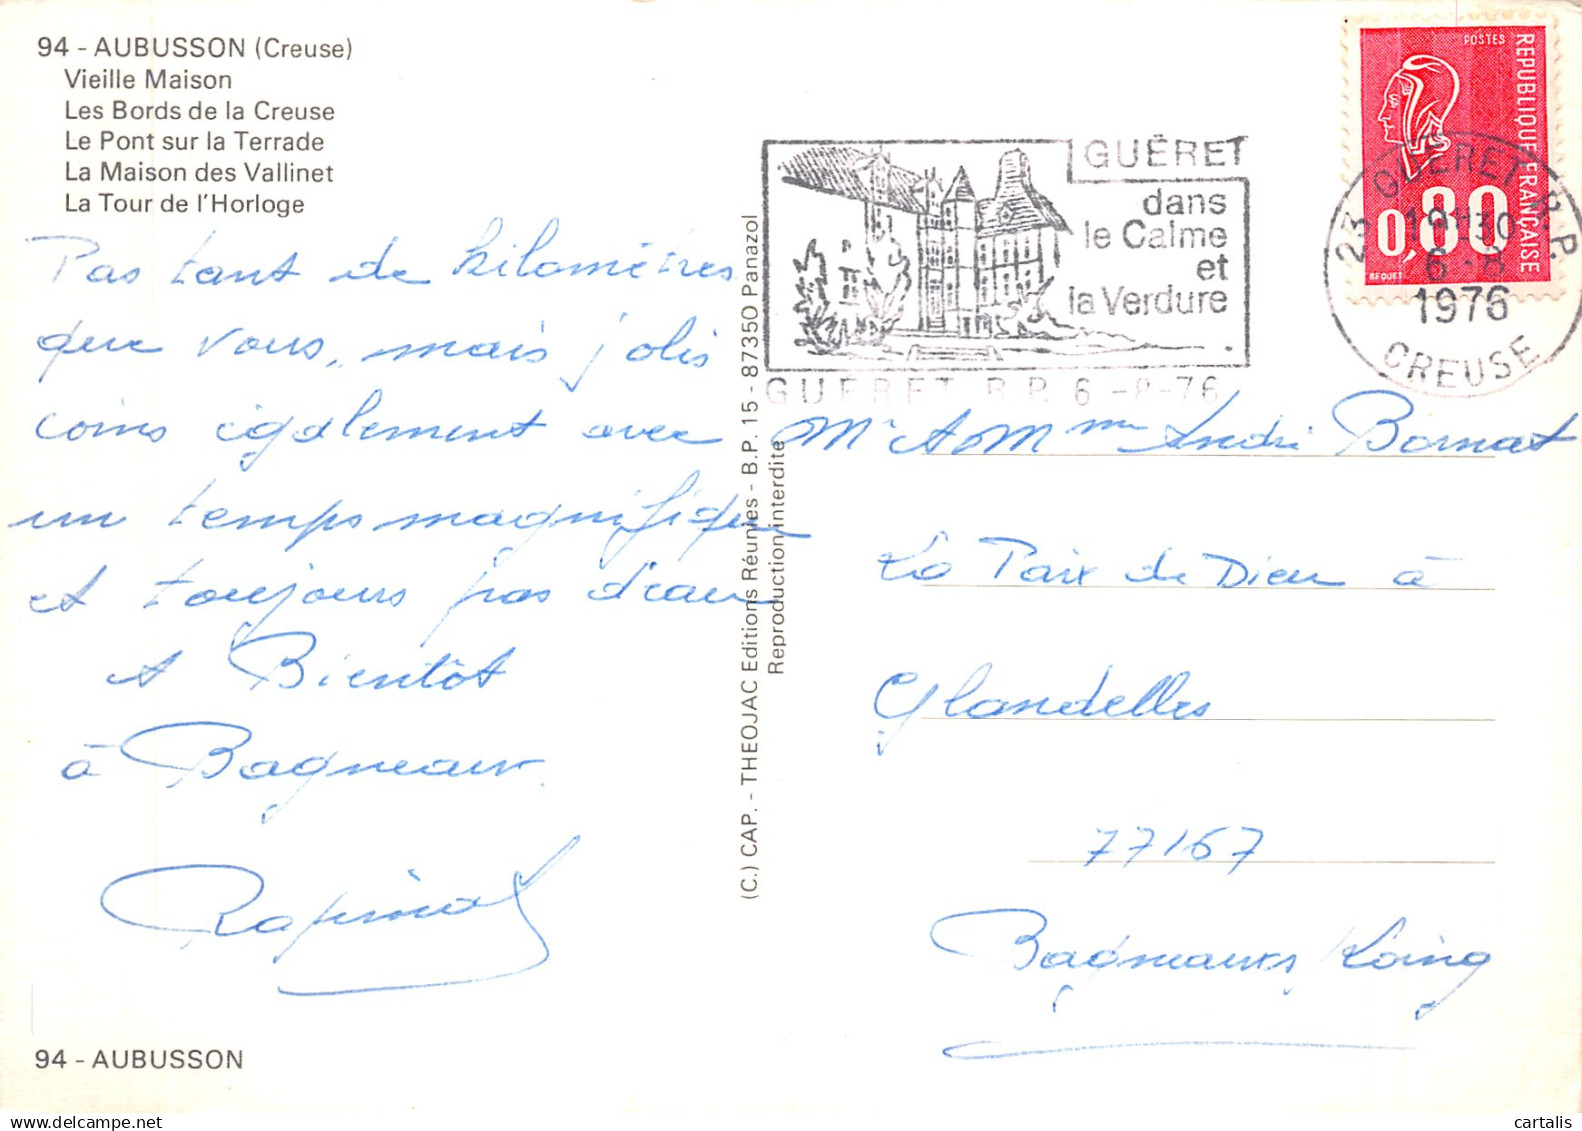 94 - AUBUSSON (Creuse)
Vieille Maison
Les Bords de la Creuse
Le Pont sur la Terrade
La Maison des Vallinet
La Tour de l'Horloge
Pas tant de kilomètres
que vous, mais jolis
coins également avec
un temps magnifique
et toujours pas d'eau
A Bientôt
à Bagneaux.
94 - AUBUSSON
(C.) CAP. - THEOJAC Editions Réunies - B.P. 15 - 87350 Panazol
Reproduction interdite
GUÉRET
dans
le Calme
et
la Verdure
GUERET R.P. 6 -8-76
POSTES
REPUBLIQUE FRANÇAISE
0,80
BEQUET
23 GUERET R.P.
19H30
6 -8
1976
CREUSE
Mr &amp; Mme André Bornat
La Paix de Dieu à
Glandelles
77167
Bagneaux s/Loing
cartalis